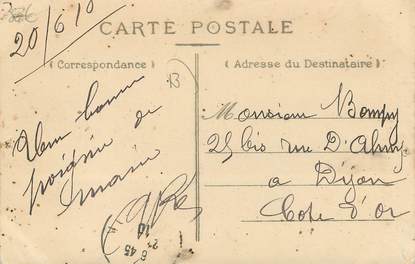 20/6/10
CARTE POSTALE
(Correspondance)
(Adresse du Destinataire)
Une bonne
poignée de
main
Monsieur Bompy
25 bis rue D'Ahuy
a Dijon
Cote d'Or